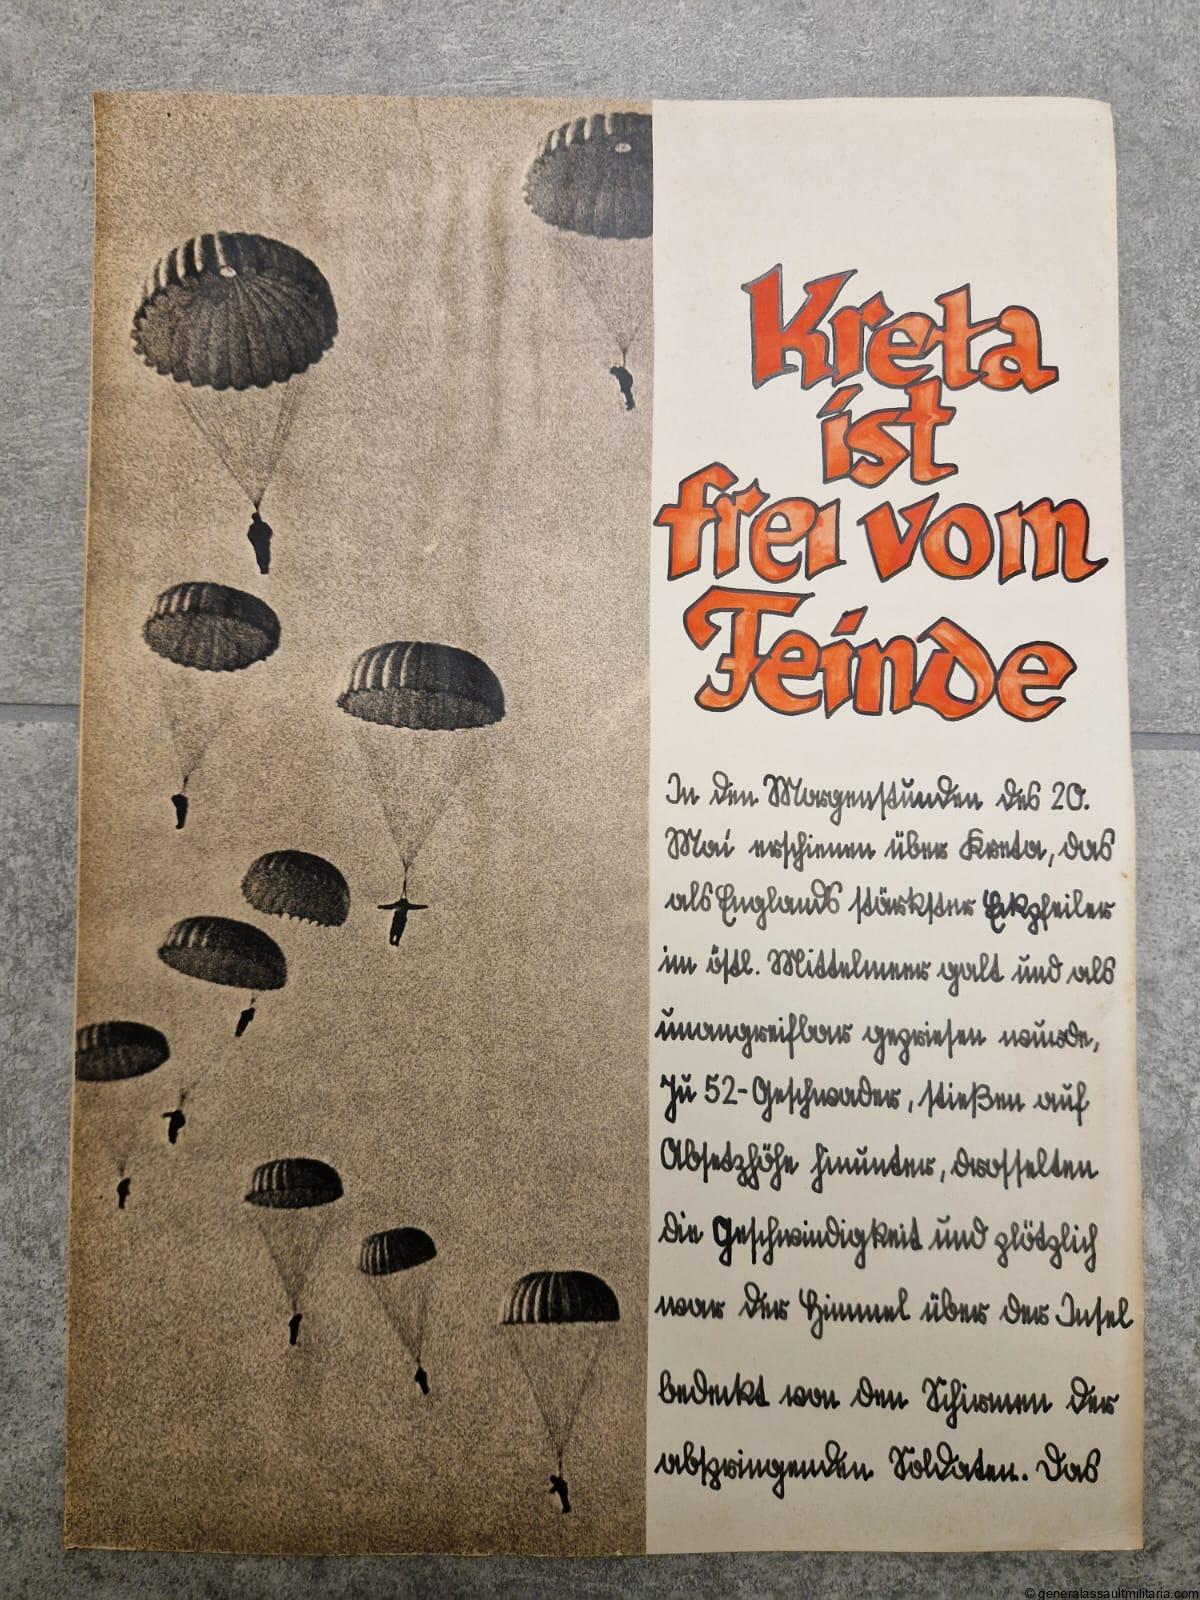 Kreta
ist
frei vom
Feinde
In den Morgenstunden des 20.
Mai erschienen über Kreta, das
als Englands stärkster Eckpfeiler
im östl. Mittelmeer galt und als
unangreifbar gepriesen wurde,
Ju 52-Geschwader, stießen auf
Absetzhöhe hinunter, drosselten
die Geschwindigkeit und plötzlich
war der Himmel über der Insel
bedeckt von den Schirmen der
abspringenden Soldaten. Das
© generalassaultmilitaria.com